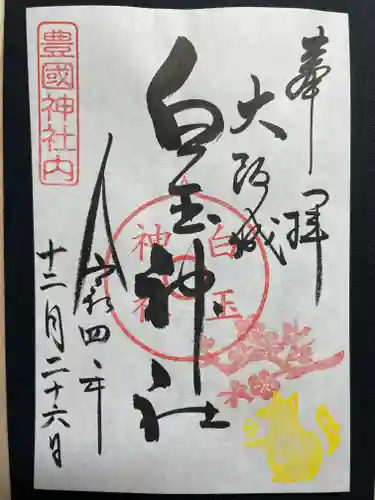 奉拝
大阪城
白玉神社
令和四年
十二月二十六日
豊國神社内
白玉
神社